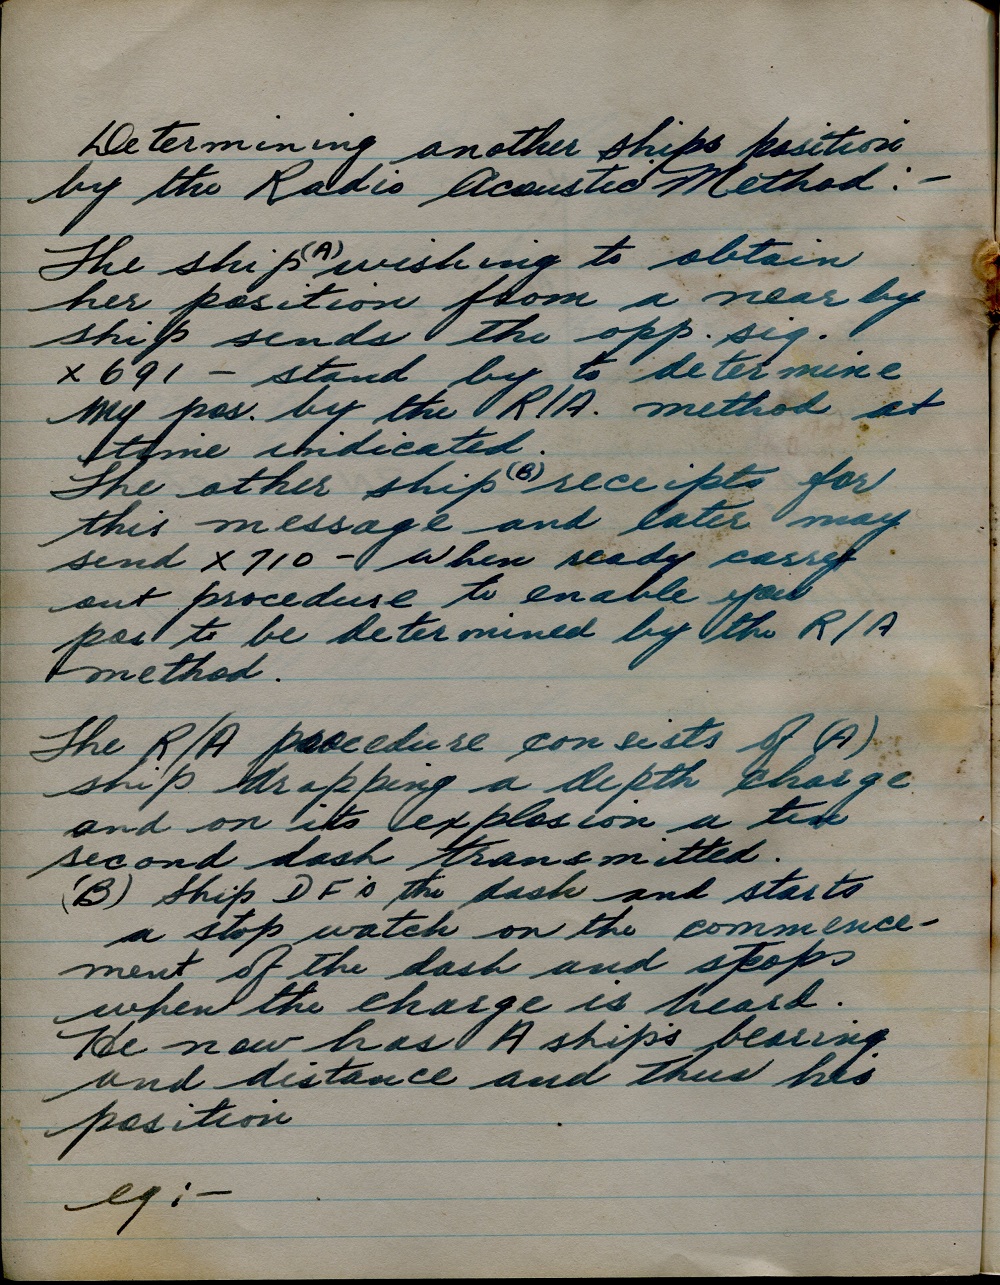 Determining another ships position
by the Radio Acoustic Method :-
The ship (A) wishing to obtain
her position from a near by
ship sends the opp. sig.
x 691 - stand by to determine
my pos. by the R/A. method at
time indicated.
The other ship (B) receipts for
this message and later may
send x 710 - when ready carry
out procedure to enable your
pos to be determined by the R/A
method.
The R/A procedure consists of (A)
ship dropping a depth charge
and on its explosion a ten
second dash transmitted.
(B) Ship DF's the dash and starts
a stop watch on the commence-
ment of the dash and stops
when the charge is heard.
He now has A ship's bearing
and distance and thus his
position
eg :-